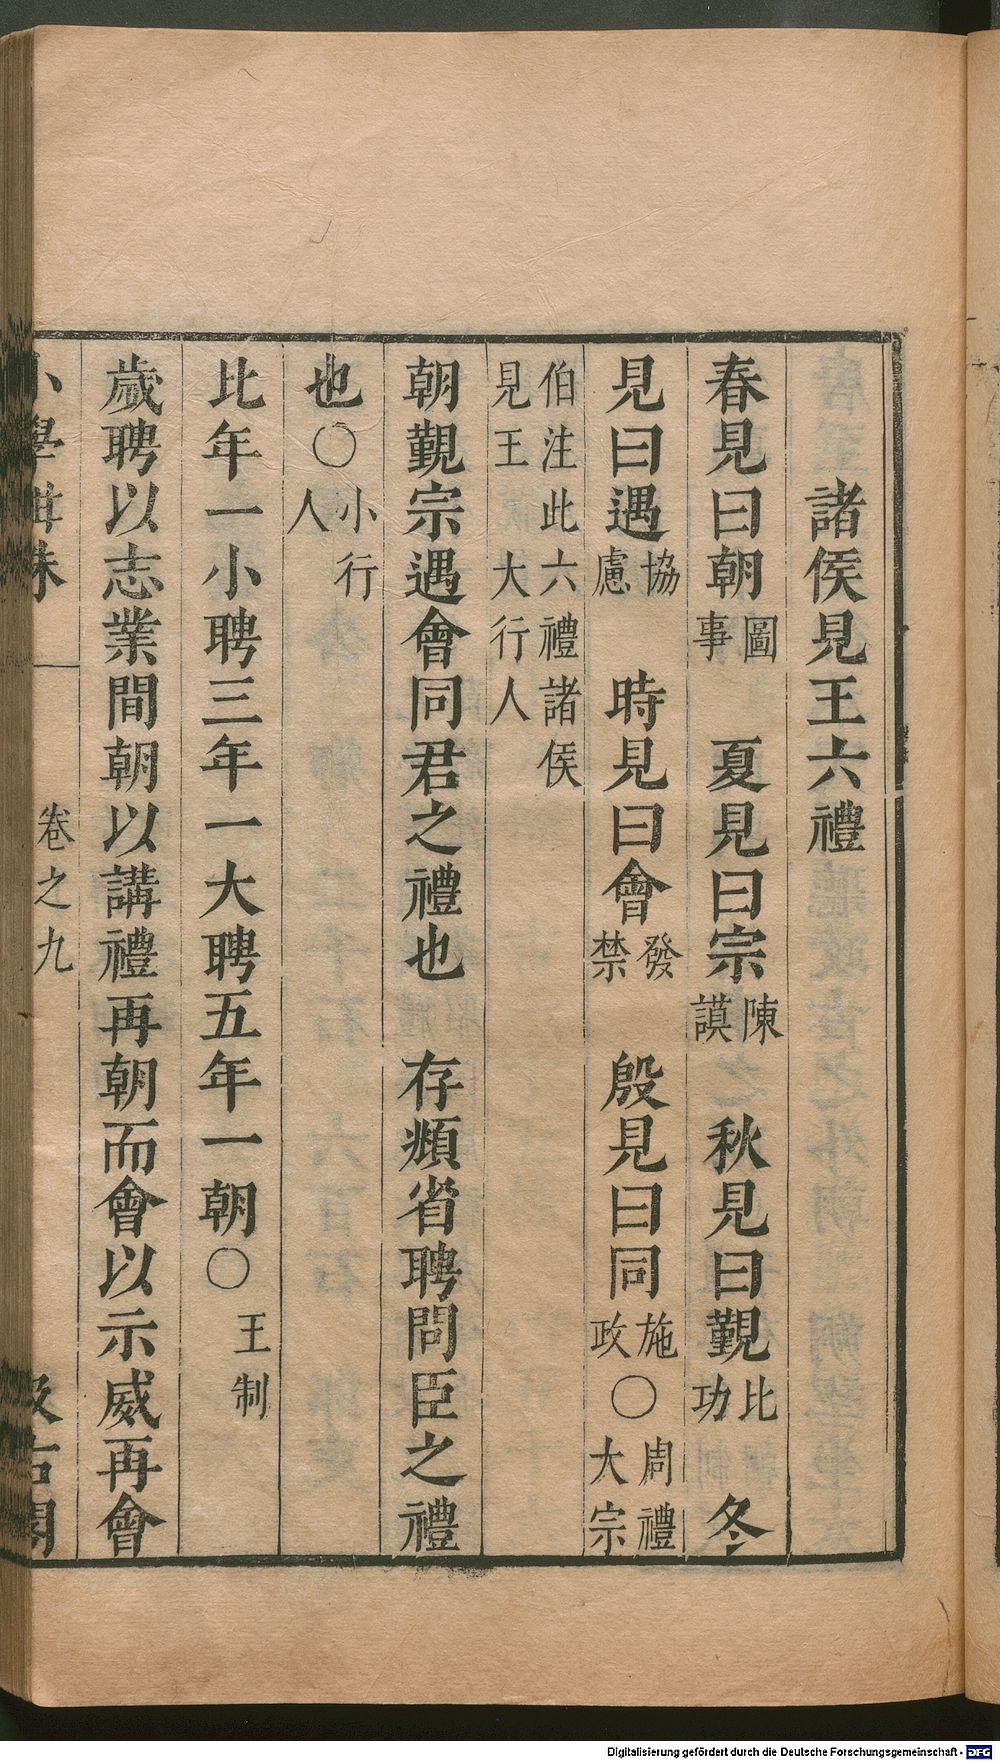 諸侯見王六禮
春見曰朝圖事　夏見曰宗陳謨　秋見曰覲比功　冬
見曰遇協慮　時見曰會發禁　殷見曰同施政〇周禮大宗
伯注此六禮諸侯見王大行人
朝覲宗遇會同君之禮也　存頫省聘問臣之禮
也〇小行人
比年一小聘三年一大聘五年一朝〇王制
歲聘以志業間朝以講禮再朝而會以示威再會
小學紺珠　卷之九　汲古閣
Digitalisierung gefördert durch die Deutsche Forschungsgemeinschaft - DFG